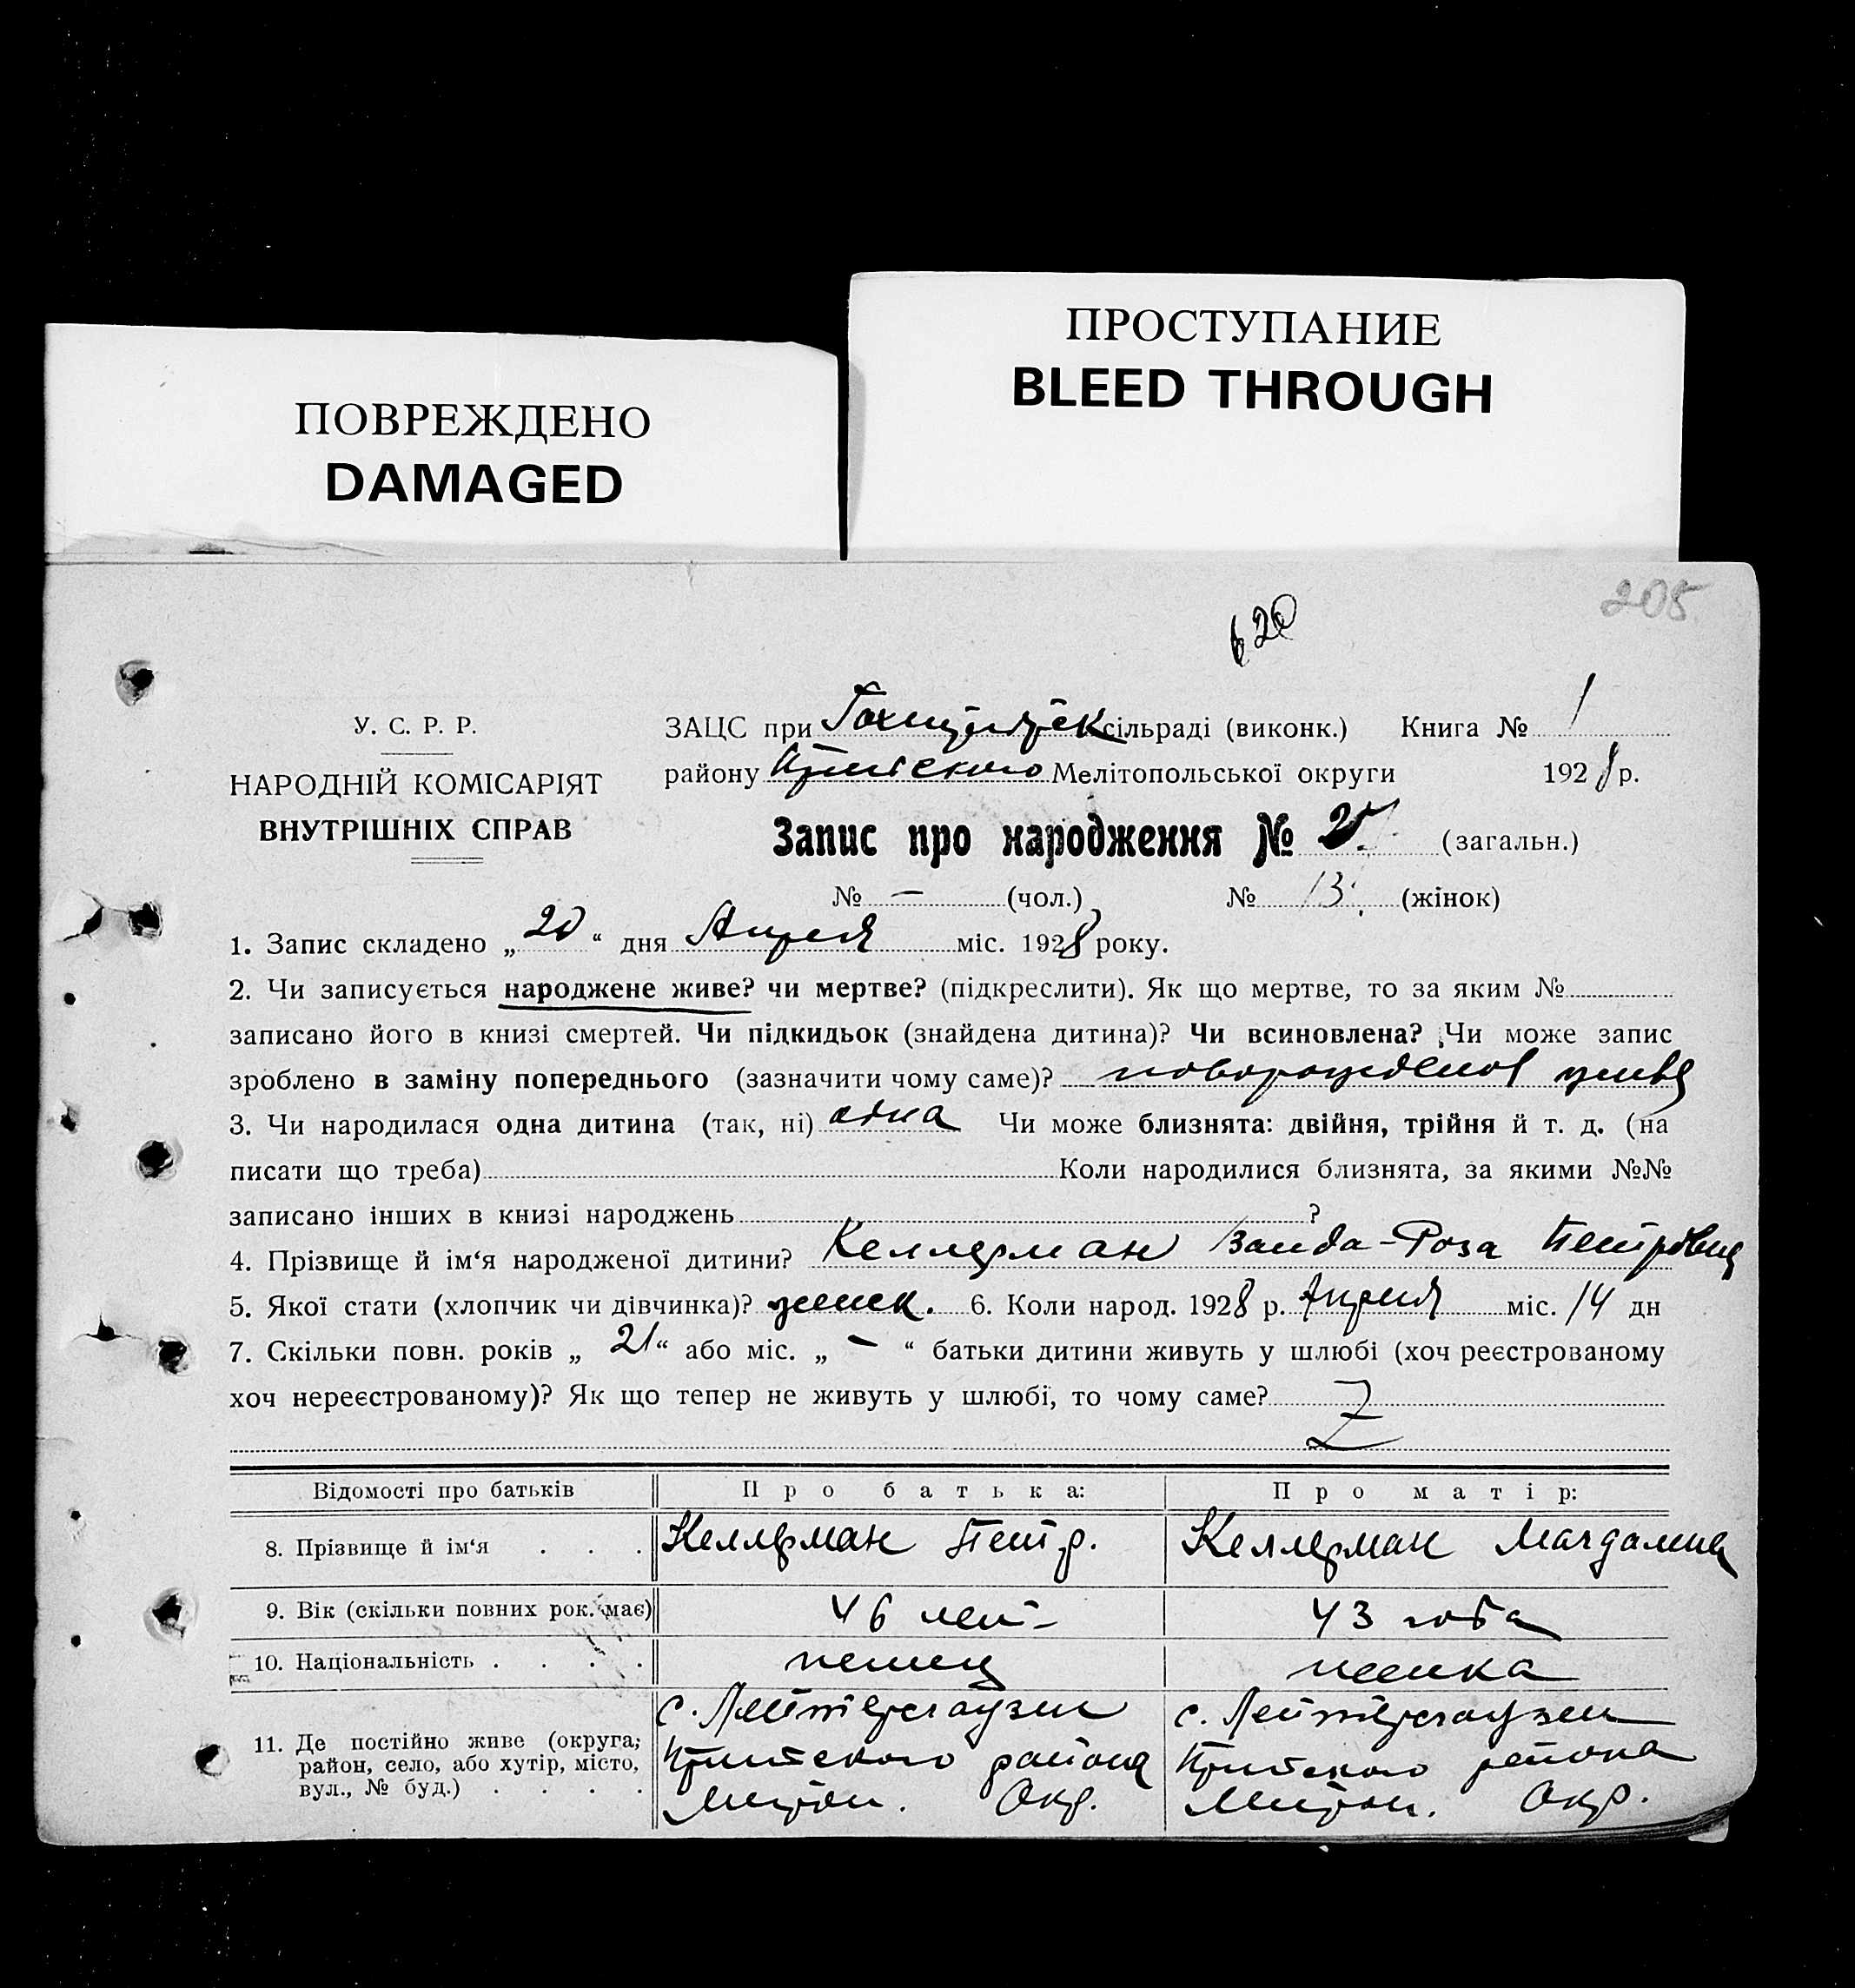 ПРОСТУПАНИЕ
BLEED THROUGH
ПОВРЕЖДЕНО
DAMAGED
205
620
У. С. Р. Р.
НАРОДНІЙ КОМІСАРІЯТ
ВНУТРІШНІХ СПРАВ
ЗАЦС при сільраді (виконк.) Книга № 1
району Пришибского Мелітопольської округи 1928 р.
Запис про народження № (загальн.)
№ — (чол.) № 13. (жінок)
1. Запис складено „20“ дня Апреля міс. 1928 року.
2. Чи записується народжене живе? чи мертве? (підкреслити). Як що мертве, то за яким №
записано його в книзі смертей. Чи підкидьок (знайдена дитина)? Чи всиновлена? Чи може запис
зроблено в заміну попереднього (зазначити чому саме)?
3. Чи народилася одна дитина (так, ні) одна Чи може близнята: двійня, трійня й т. д. (на
писати що треба) Коли народилися близнята, за якими №№
записано інших в книзі народжень ?
4. Прізвище й ім‘я народженої дитини? Келлерман Ванда-Роза Петровна
5. Якої стати (хлопчик чи дівчинка)? женск. 6. Коли народ. 1928 р. Апреля міс. 14 дн
7. Скільки повн. років „21“ або міс. „—“ батьки дитини живуть у шлюбі (хоч реєстрованому
хоч нереєстрованому)? Як що тепер не живуть у шлюбі, то чому саме?
Відомості про батьків Про батька: Про матір:
8. Прізвище й ім‘я . . . Келлерман Петр. Келлерман Магдалина
9. Вік (скільки повних рок. має) 46 лет 43 года
10. Національність . . . . немец немка
11. Де постійно живе (округа, район, село, або хутір, місто, вул., № буд.) . . . .
с. Лейтерсгаузен с. Лейтерсгаузен
Пришибского района Пришибского района
Мелитоп. Окр. Мелитоп. Окр.